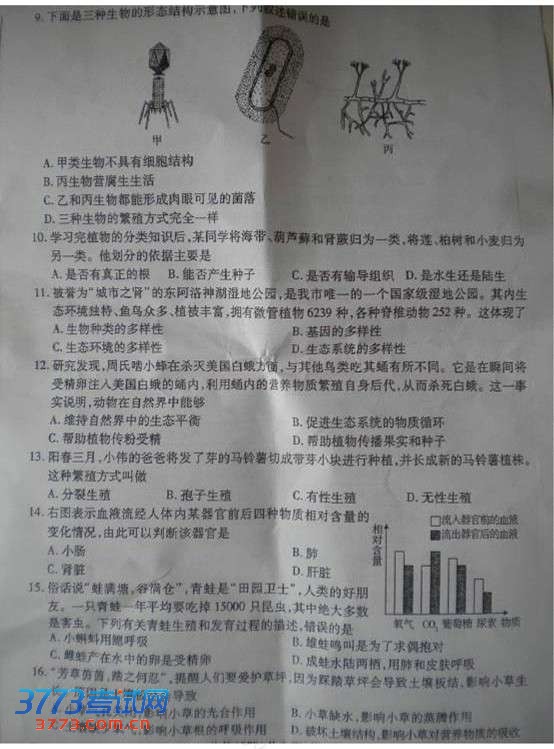 9. 下面是三种生物的形态结构示意图，下列叙述错误的是
甲
乙
丙
A. 甲类生物不具有细胞结构
B. 丙生物营腐生生活
C. 乙和丙生物都能形成肉眼可见的菌落
D. 三种生物的繁殖方式完全一样
10. 学习完植物的分类知识后,某同学将海带、葫芦藓和肾蕨归为一类,将莲、柏树和小麦归为
另一类。他划分的依据主要是
A. 是否有真正的根 B. 能否产生种子 C. 是否有输导组织 D. 是水生还是陆生
11. 被誉为“城市之肾”的东阿洛神湖湿地公园,是我市唯一的一个国家级湿地公园。其内生
态环境独特、鱼鸟众多、植被丰富,拥有微管植物6239种,各种脊椎动物252种。这体现了
A. 生物种类的多样性 B. 基因的多样性
C. 生态环境的多样性 D. 生态系统的多样性
12. 研究发现,周氏啮小蜂在杀灭美国白蛾方面,与其他鸟类吃其蛹有所不同。它是在瞬间将
受精卵注入美国白蛾的蛹内,利用蛹内的营养物质繁殖自身后代,从而杀死白蛾。这一事
实说明,动物在自然界中能够
A. 维持自然界中的生态平衡 B. 促进生态系统的物质循环
C. 帮助植物传粉受精 D. 帮助植物传播果实和种子
13. 阳春三月,小伟的爸爸将发了芽的马铃薯切成带芽小块进行种植,并长成新的马铃薯植株。
这种繁殖方式叫做
A. 分裂生殖 B. 孢子生殖 C. 有性生殖 D. 无性生殖
14. 右图表示血液流经人体内某器官前后四种物质相对含量的
变化情况,由此可以判断该器官是
A. 小肠 B. 肺
C. 肾脏 D. 肝脏
相对含量
流入器官前的血液
流出器官后的血液
氧气 CO₂ 葡萄糖 尿素 物质
15. 俗话说“蛙满塘,谷满仓”,青蛙是“田园卫士”,人类的好朋
友。一只青蛙一年平均要吃掉15000只昆虫,其中绝大多数
是害虫。下列有关青蛙生殖和发育过程的描述,错误的是
A. 小蝌蚪用鳃呼吸 B. 雄蛙鸣叫是为了求偶抱对
C. 雌蛙产在水中的卵是受精卵 D. 成蛙水陆两栖,用肺和皮肤呼吸
16. “芳草茵茵,踏之何忍”,提醒人们要爱护草坪,因为踩踏草坪会导致土壤板结,影响小草生
导致
影响小草的光合作用 B. 小草缺水,影响小草的蒸腾作用
影响小草根的呼吸作用 D. 破坏土壤结构,影响小草对营养物质的吸收
3773考试网
3773.com.cn